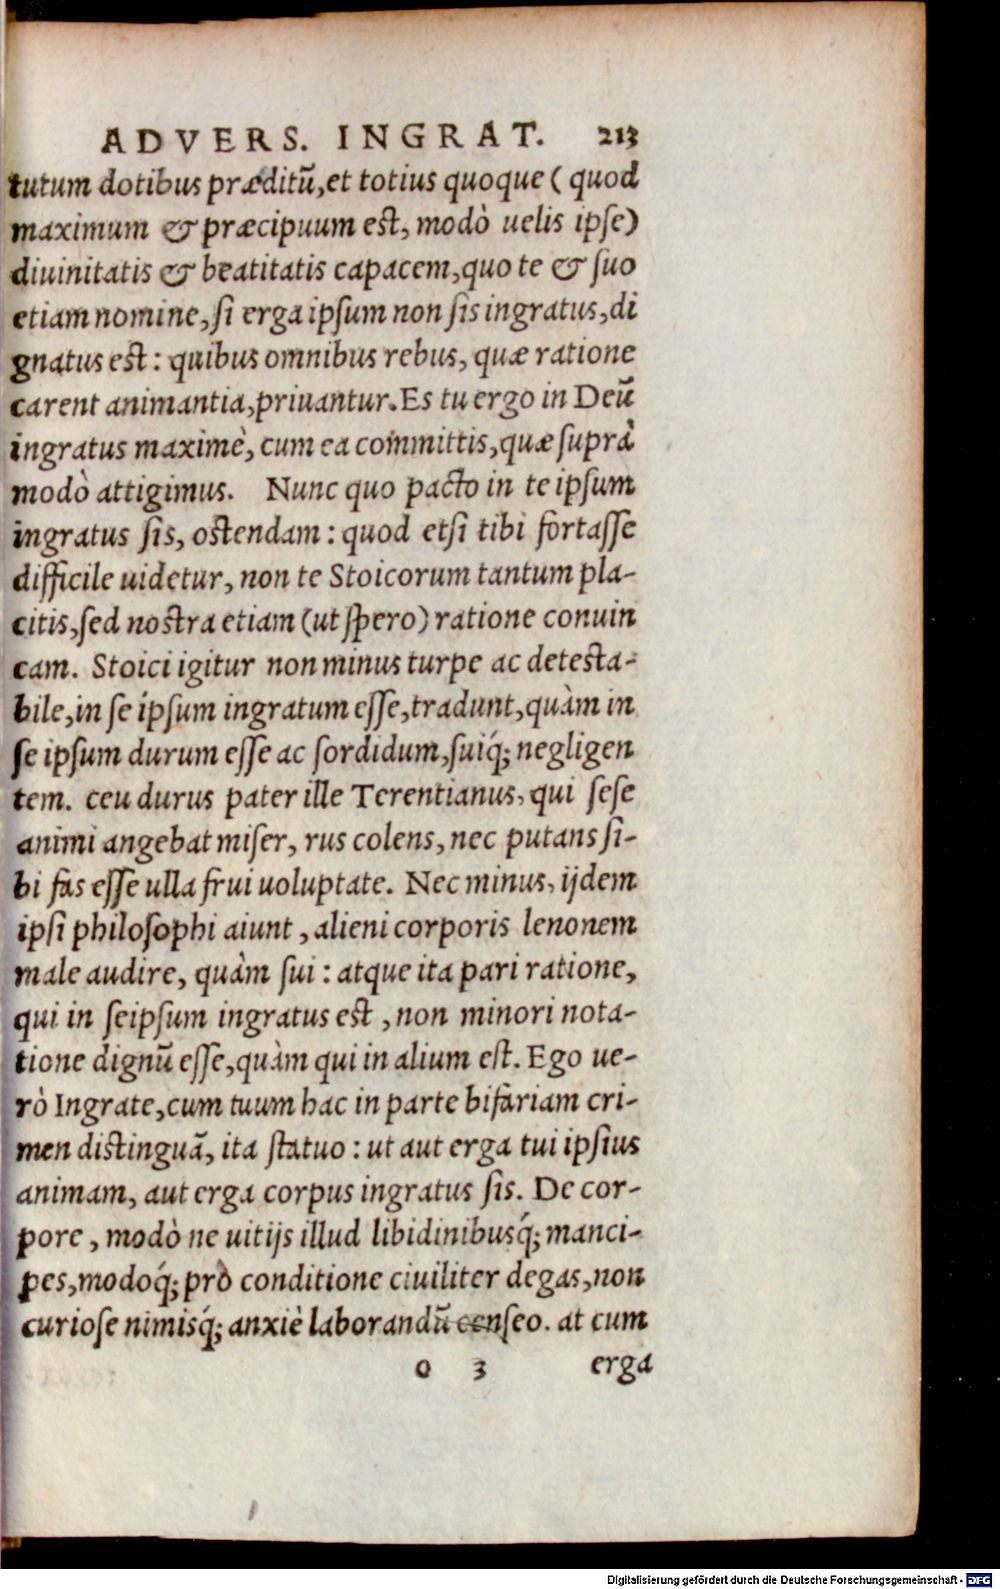 ADVERS. INGRAT. 213
tutum dotibus præditũ, et totius quoque ( quod
maximum & præcipuum est, modò uelis ipse)
diuinitatis & beatitatis capacem, quo te & suo
etiam nomine, si erga ipsum non sis ingratus, di
gnatus est: quibus omnibus rebus, quæ ratione
carent animantia, priuantur. Es tu ergo in Deũ
ingratus maximè, cum ea committis, quæ suprà
modò attigimus. Nunc quo pacto in te ipsum
ingratus sis, ostendam: quod etsi tibi fortasse
difficile uidetur, non te Stoicorum tantum pla-
citis, sed nostra etiam (ut spero) ratione conuin
cam. Stoici igitur non minus turpe ac detesta-
bile, in se ipsum ingratum esse, tradunt, quàm in
se ipsum durum esse ac sordidum, suiq́; negligen
tem. ceu durus pater ille Terentianus, qui sese
animi angebat miser, rus colens, nec putans si-
bi fas esse ulla frui uoluptate. Nec minus, ijdem
ipsi philosophi aiunt, alieni corporis lenonem
male audire, quàm sui: atque ita pari ratione,
qui in seipsum ingratus est, non minori nota-
tione dignũ esse, quàm qui in alium est. Ego ue-
rò Ingrate, cum tuum hac in parte bifariam cri-
men distinguã, ita statuo: ut aut erga tui ipsius
animam, aut erga corpus ingratus sis. De cor-
pore, modò ne uitijs illud libidinibusq́; manci-
pes, modoq́; prò conditione ciuiliter degas, non
curiose nimisq́; anxiè laborandũ censeo. at cum
o 3 erga
Digitalisierung gefördert durch die Deutsche Forschungsgemeinschaft - DFG